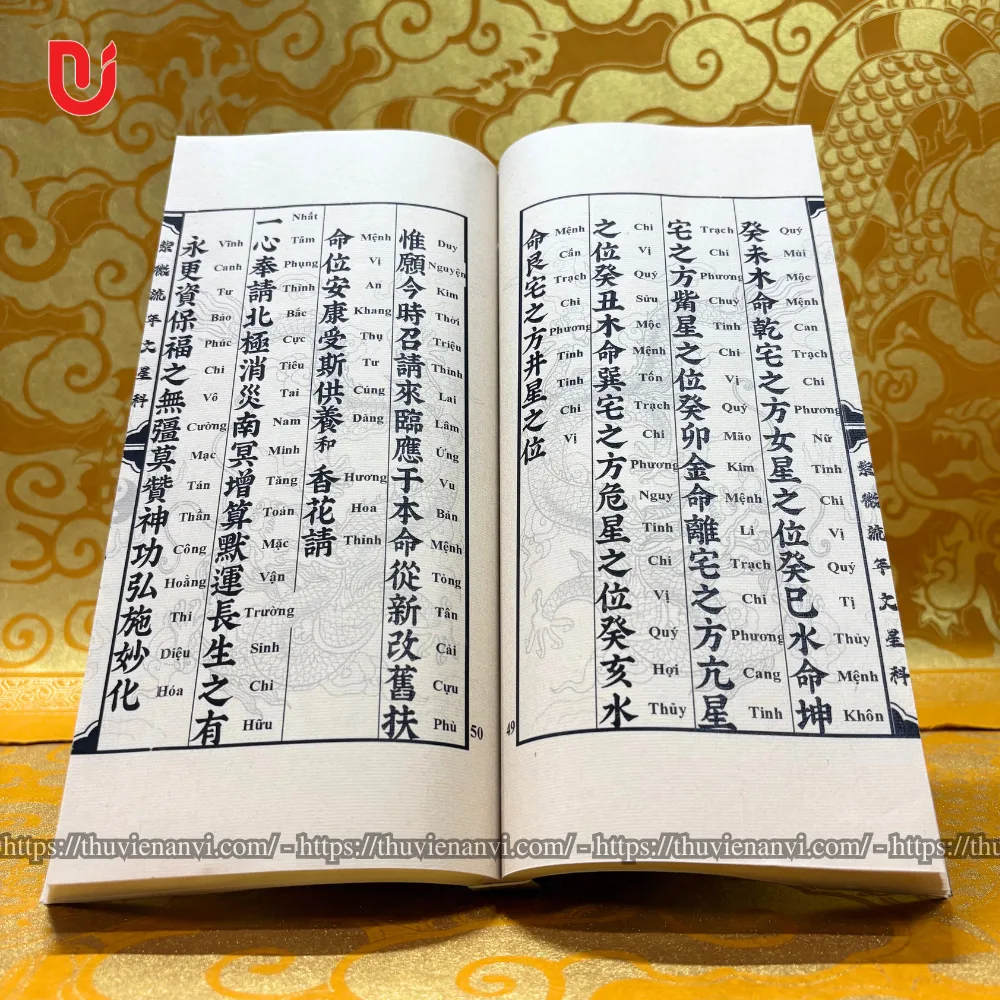 紫微流年文星科
癸未木命乾宅之方女星之位癸巳水命坤
Quý Mùi Mộc Mệnh Can Trạch Chi Phương Nữ Tinh Chi Vị Quý Tị Thủy Mệnh Khôn
宅之方觜星之位癸卯金命離宅之方亢星
Trạch Chi Phương Chuỷ Tinh Chi Vị Quý Mão Kim Mệnh Li Trạch Chi Phương Cang Tinh
之位癸丑木命巽宅之方危星之位癸亥水
Chi Vị Quý Sửu Mộc Mệnh Tốn Trạch Chi Phương Nguy Tinh Chi Vị Quý Hợi Thủy
命艮宅之方井星之位
Mệnh Cấn Trạch Chi Phương Tỉnh Tinh Chi Vị
49
惟願今時召請來臨應于本命從新改舊扶
Duy Nguyện Kim Thời Triệu Thỉnh Lai Lâm Ứng Vu Bản Mệnh Tòng Tân Cải Cựu Phù
命位安康受斯供養和香花請
Mệnh Vị An Khang Thụ Tư Cúng Dàng Hương Hoa Thỉnh
一心奉請北極消災南冥增算默運長生之有
Nhất Tâm Phụng Thỉnh Bắc Cực Tiêu Tai Nam Minh Tăng Toán Mặc Vận Trường Sinh Chi Hữu
永更資保福之無彊莫贊神功弘施妙化
Vĩnh Canh Tư Bảo Phúc Chi Vô Cường Mạc Tán Thần Công Hoằng Thi Diệu Hóa
紫微流年文星科
50
-https://thuvienanvi.com/ -https://thuvienanvi.com/ -https://thuvienanvi.com/